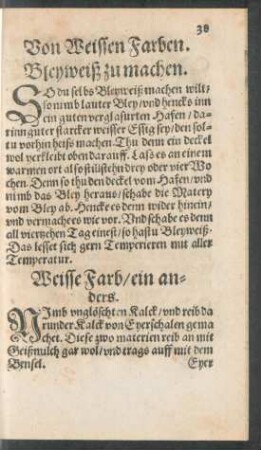 38
Von Weissen Farben.
Bleyweiß zu machen.
SO du selbs Bleyweiß machen wilt/
so nimb lauter Bley/vnd hencks inn
ein guten verglasurten Hafen/da-
rinn guter starcker weisser Essig sey/den sol-
tu vorhin heiß machen Thu denn ein deckel
wol verkleibt oben darauff. Laß es an einem
warmen ort also still stehn drey oder vier Wo
chen Denn so thu den deckel vom Hafen/vnd
nimb das Bley heraus/schabe die Matery
vom Bley ab. Hencke es denn wider hinein/
vnd vermach es wie vor. Vnd schabe es denn
all viertzehen Tag einest/so hastu Bleyweiß.
Das lesset sich gern Temperieren mit aller
Temperatur.
Weisse Farb/ein an-
ders.
NImb vnglöschten Kalck/vnd reib da
runder Kalck von Eyerschalen gema
chet. Diese zwo materien reib an mit
Geißmilch gar wol/vnd trags auff mit dem
Bensel.
Eyer